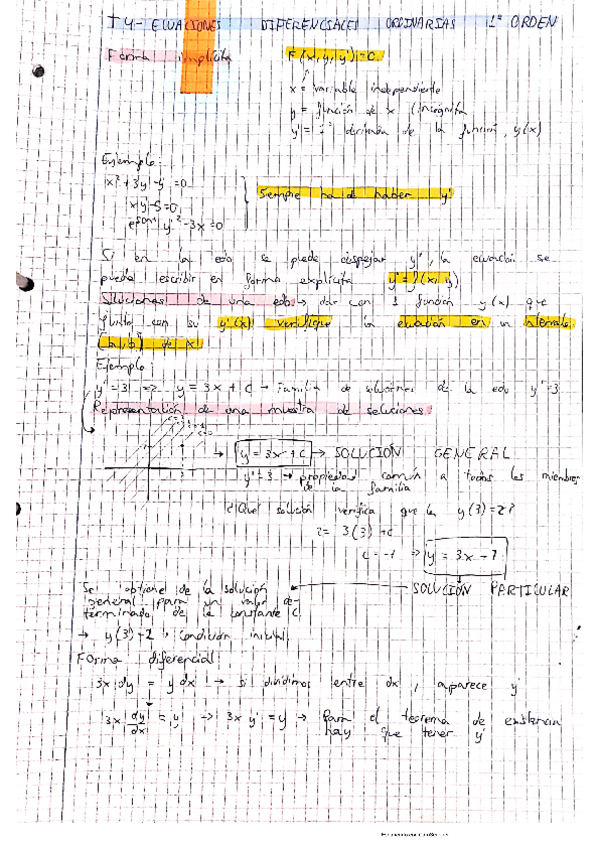 T4- ECUACIONES DIFERENCIALES ORDINARIAS 1º ORDEN
Forma implícita F(x,y,y')=0
x = variable independiente
y = función de x (incógnita
y' = 1ª derivada de la función, y(x)
Ejemplo:
x² + 3y' - y = 0
xy' - 5 = 0
y² - 3x = 0
Siempre ha de haber y'
Si en la edo se puede despejar y', la ecuación se
puede escribir en forma explícita y' = f(x,y)
Soluciones de una edo → dar con 1 función y(x) que
junto con su y'(x) verifique la ecuación en un intervalo
(a,b) de x
Ejemplo:
y' = 3 => y = 3x + C → Familia de soluciones de la edo y' = 3
Representación de una muestra de soluciones:
→ y = 3x + C → SOLUCIÓN GENERAL
y' = 3 → propiedad común a todos los miembros
de la familia
¿Qué solución verifica que la y(3) = 2?
2 = 3(3) + C
C = -7 => y = 3x - 7
SOLUCIÓN PARTICULAR
Se obtiene de la solución
general para un valor de-
terminado de la constante C
→ y(3) = 2 , condición inicial
Forma diferencial
3x dy = y dx → si dividimos entre dx, aparece y'
3x dy/dx = y → 3x y' = y → Para el teorema de existencia
hay que tener y'